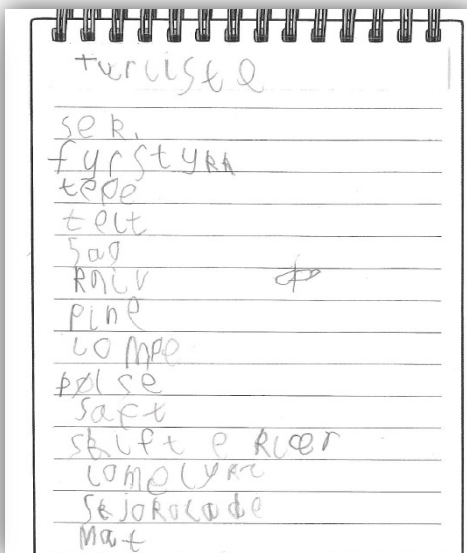 turliste
sek.
fyrstykk
tepe
telt
Sag
kniv
pine
lompe
pølse
Saft
skift e klær
lomelykt
Skjokolade
Mat